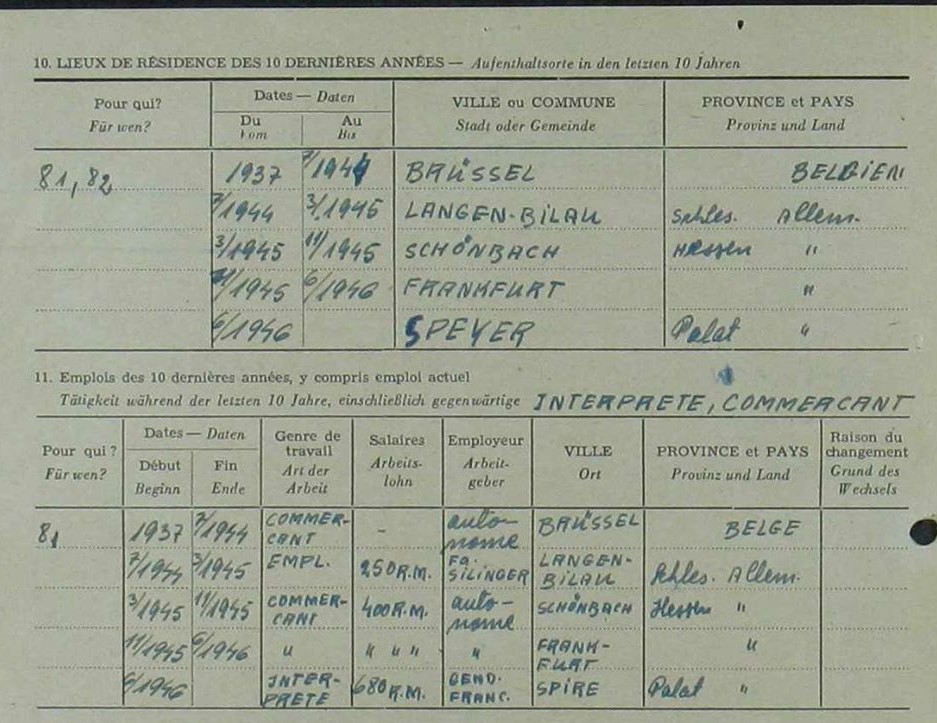 10. LIEUX DE RÉSIDENCE DES 10 DERNIÈRES ANNÉES — Aufenthaltsorte in den letzten 10 Jahren
Pour qui? Dates — Daten VILLE ou COMMUNE PROVINCE et PAYS
Für wen? Du Au Stadt oder Gemeinde Provinz und Land
Vom Bis
81, 82 1937 7/1944 BRÜSSEL BELGIEN
7/1944 3/1945 LANGEN-BILAU Schles. Allem.
3/1945 11/1945 SCHÖNBACH Hessen "
11/1945 6/1946 FRANKFURT "
6/1946 SPEYER Palat "
11. Emplois des 10 dernières années, y compris emploi actuel
Tätigkeit während der letzten 10 Jahre, einschließlich gegenwärtige INTERPRETE, COMMERCANT
Pour qui? Dates — Daten Genre de travail Salaires Employeur VILLE PROVINCE et PAYS Raison du changement
Für wen? Début Fin Art der Arbeit Arbeits-lohn Arbeit-geber Ort Provinz und Land Grund des Wechsels
Beginn Ende
81 1937 7/1944 COMMER-CANT - auto-nome BRÜSSEL BELGE
7/1944 3/1945 EMPL. 250 R.M. Fa. SILINGER LANGEN-BILAU Schles. Allem.
3/1945 11/1945 COMMER-CANT 400 R.M. auto-nome SCHÖNBACH Hessen "
11/1945 6/1946 " " " " " FRANK-FURT "
6/1946 INTER-PRETE 680 R.M. GEND. FRANC. SPIRE Palat "